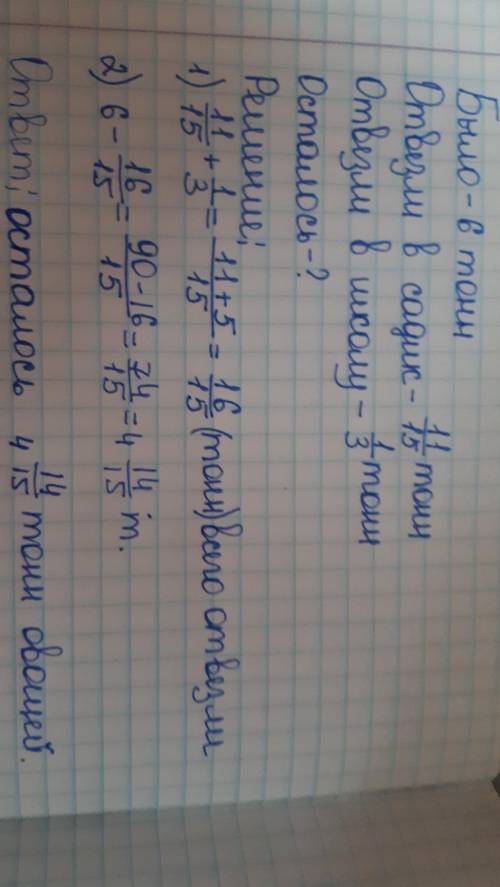 Было - 6 тонн
Отвезли в садик - 11/15 тонн
Отвезли в школу - 1/3 тонн
Осталось - ?
Решение;
1) 11/15 + 1/3 = 11+5/15 = 16/15 (тонн) всего отвезли
2) 6 - 16/15 = 90-16/15 = 74/15 = 4 14/15 т.
Ответ; осталось 4 14/15 тонн овощей.